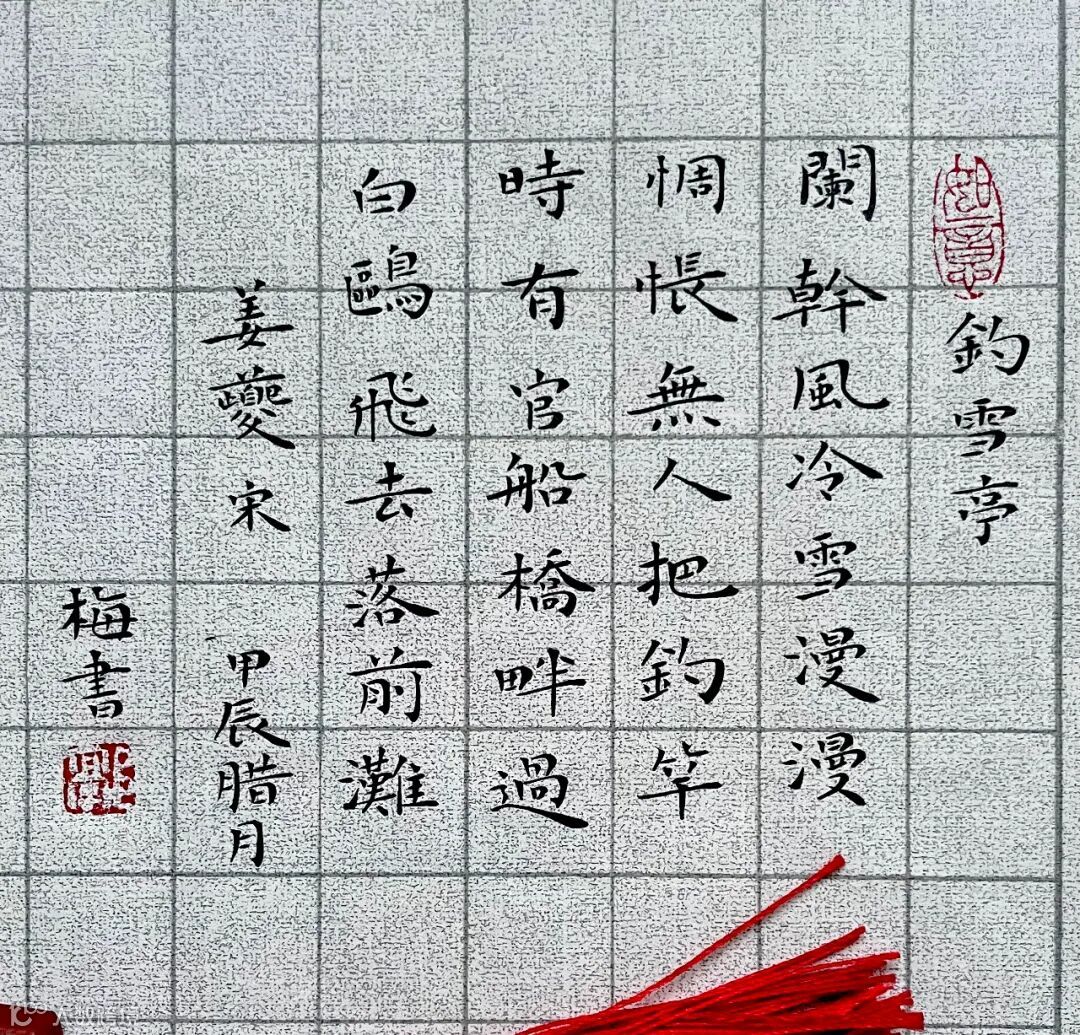 如意
釣雪亭
闌幹風冷雪漫漫
惆悵無人把釣竿
時有官船橋畔過
白鷗飛去落前灘
姜夔 宋 甲辰腊月
梅書